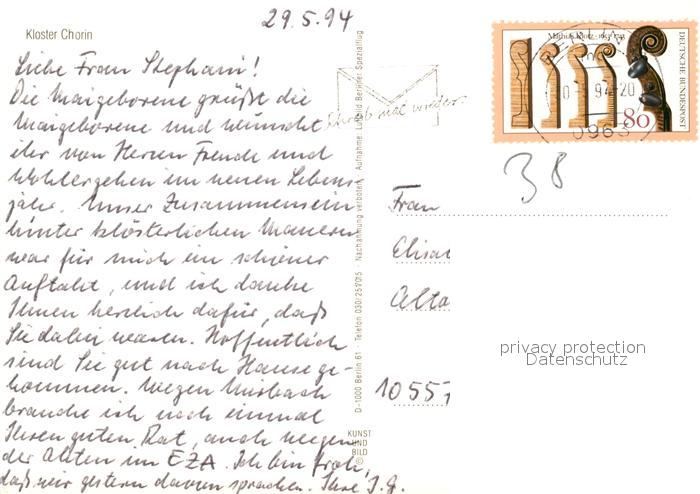 29.5.94
Kloster Chorin
Liebe Frau Stephani!
Die Maigeborene grüßt die
Maigeborene und wünscht
ihr von Herzen Freude und
Wohlergehen im neuen Lebens-
jahr. Unser Zusammensein
hinter klösterlichen Mauern
war für mich ein schöner
Auftakt, und ich danke
Ihnen herzlich dafür, daß
Sie dabei waren. Hoffentlich
sind Sie gut nach Hause ge-
kommen. Wegen Misbach
brauche ich noch einmal
Ihren guten Rat, auch wegen
der Akten im EZA. Ich bin froh,
daß wir gestern davon sprachen. Ihre I.G.
Schreib mal wieder
D-1000 Berlin 61 · Telefon 030/2517015 · Nachahmung verboten · Aufnahme: Luftbild Berliner Spezialflug
KUNST
UND
BILD
©
Mathias Klotz · 1653-1743
DEUTSCHE BUNDESPOST
80
38
Frau
Elisa
Alto
1055
privacy protection
Datenschutz